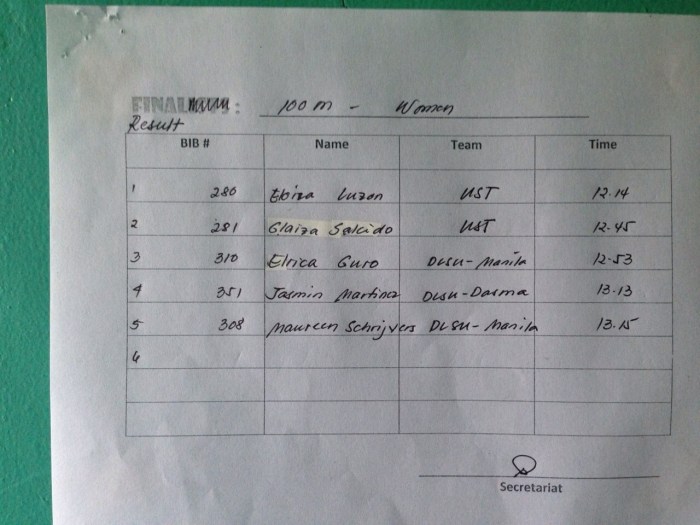 FINAL : 100 m - Women
Result
BIB # Name Team Time
1 280 Eloiza Luzon UST 12.14
2 281 Glaiza Salcido UST 12.45
3 310 Elrica Guro DLSU-Manila 12.53
4 351 Jasmin Martinez DLSU-Dasma 13.13
5 308 Maureen Schrijvers DLSU-Manila 13.15
6
Secretariat